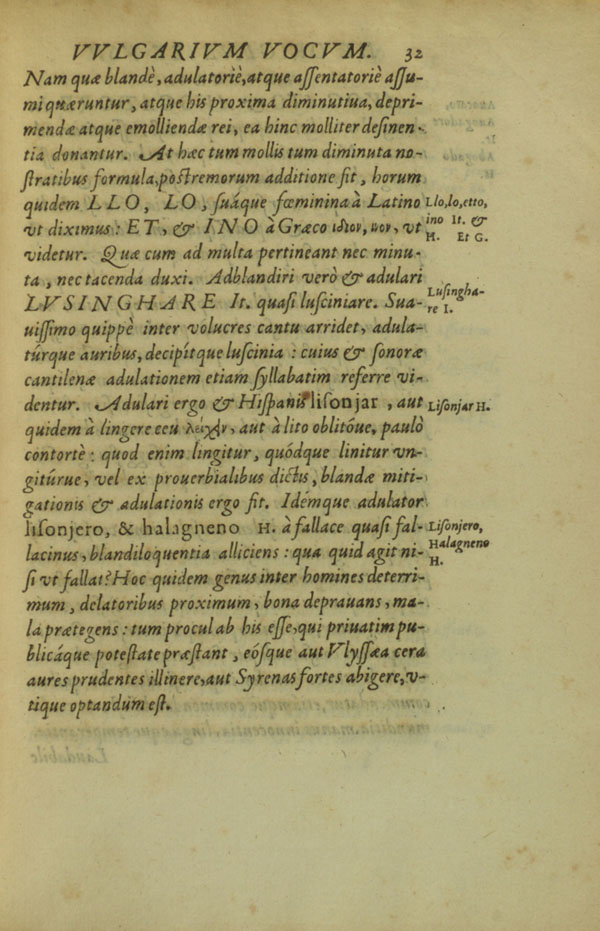 VVLGARIVM VOCVM. 32
Nam quæ blandè, adulatoriè, atque assentatoriè assu-
mi quæruntur, atque his proxima diminutiua, depri-
mendæ atque emolliendæ rei, ea hinc molliter desinen-
tia donantur. At hæc tum mollis tum diminuta no-
stratibus formula, postremorum additione fit, horum
quidem LLO, LO, suáque fœminina à Latino
Llo, lo, etto,
vt diximus: ET, & INO à Græco ιδιον, ινον, vt
ino It. &
H. Et G.
videtur. Quæ cum ad multa pertineant nec minu-
ta, nec tacenda duxi. Adblandiri verò & adulari
LVSINGHARE It. quasi lusciniare. Sua-
Lusingha-
re I.
uissimo quippè inter volucres cantu arridet, adula-
túrque auribus, decipítque luscinia: cuius & sonoræ
cantilenæ adulationem etiam syllabatim referre vi-
dentur. Adulari ergo & Hispanis lisonjar, aut
Lisonjar H.
quidem à lingere ceu λειχην, aut à lito oblitóue, paulò
contortè: quod enim lingitur, quódque linitur vn-
gitúrue, vel ex prouerbialibus dictis, blandæ miti-
gationis & adulationis ergo fit. Idémque adulator
lisonjero, & halagneno H. à fallace quasi fal-
Lisonjero,
Halagneno
H.
lacinus, blandiloquentia alliciens: qua quid agit ni-
si vt fallat? Hoc quidem genus inter homines deterri-
mum, delatoribus proximum, bona deprauans, ma-
la prætegens: tum procul ab his esse, qui priuatim pu-
blicáque potestate præstant, eósque aut Vlyssæa cera
aures prudentes illinere, aut Syrenas fortes abigere, v-
tique optandum est.